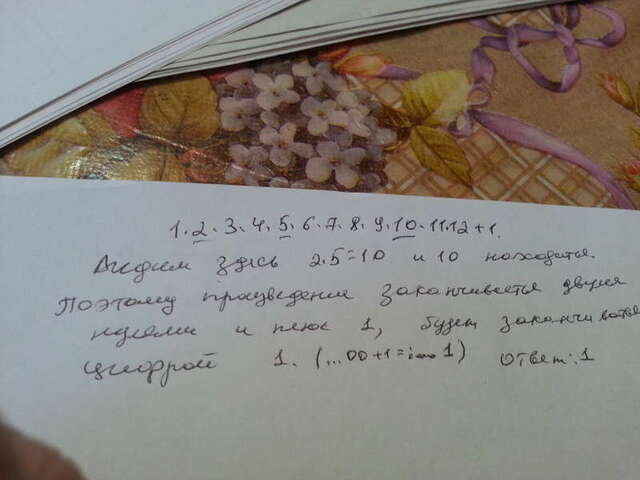 1·2·3·4·5·6·7·8·9·10·11·12+1.
здесь 2·5=10 и 10 находится.
Поэтому произведение заканчивается двумя
нулями и плюс 1, будет заканчиваться
цифрой 1. (...00+1=...1) Ответ: 1